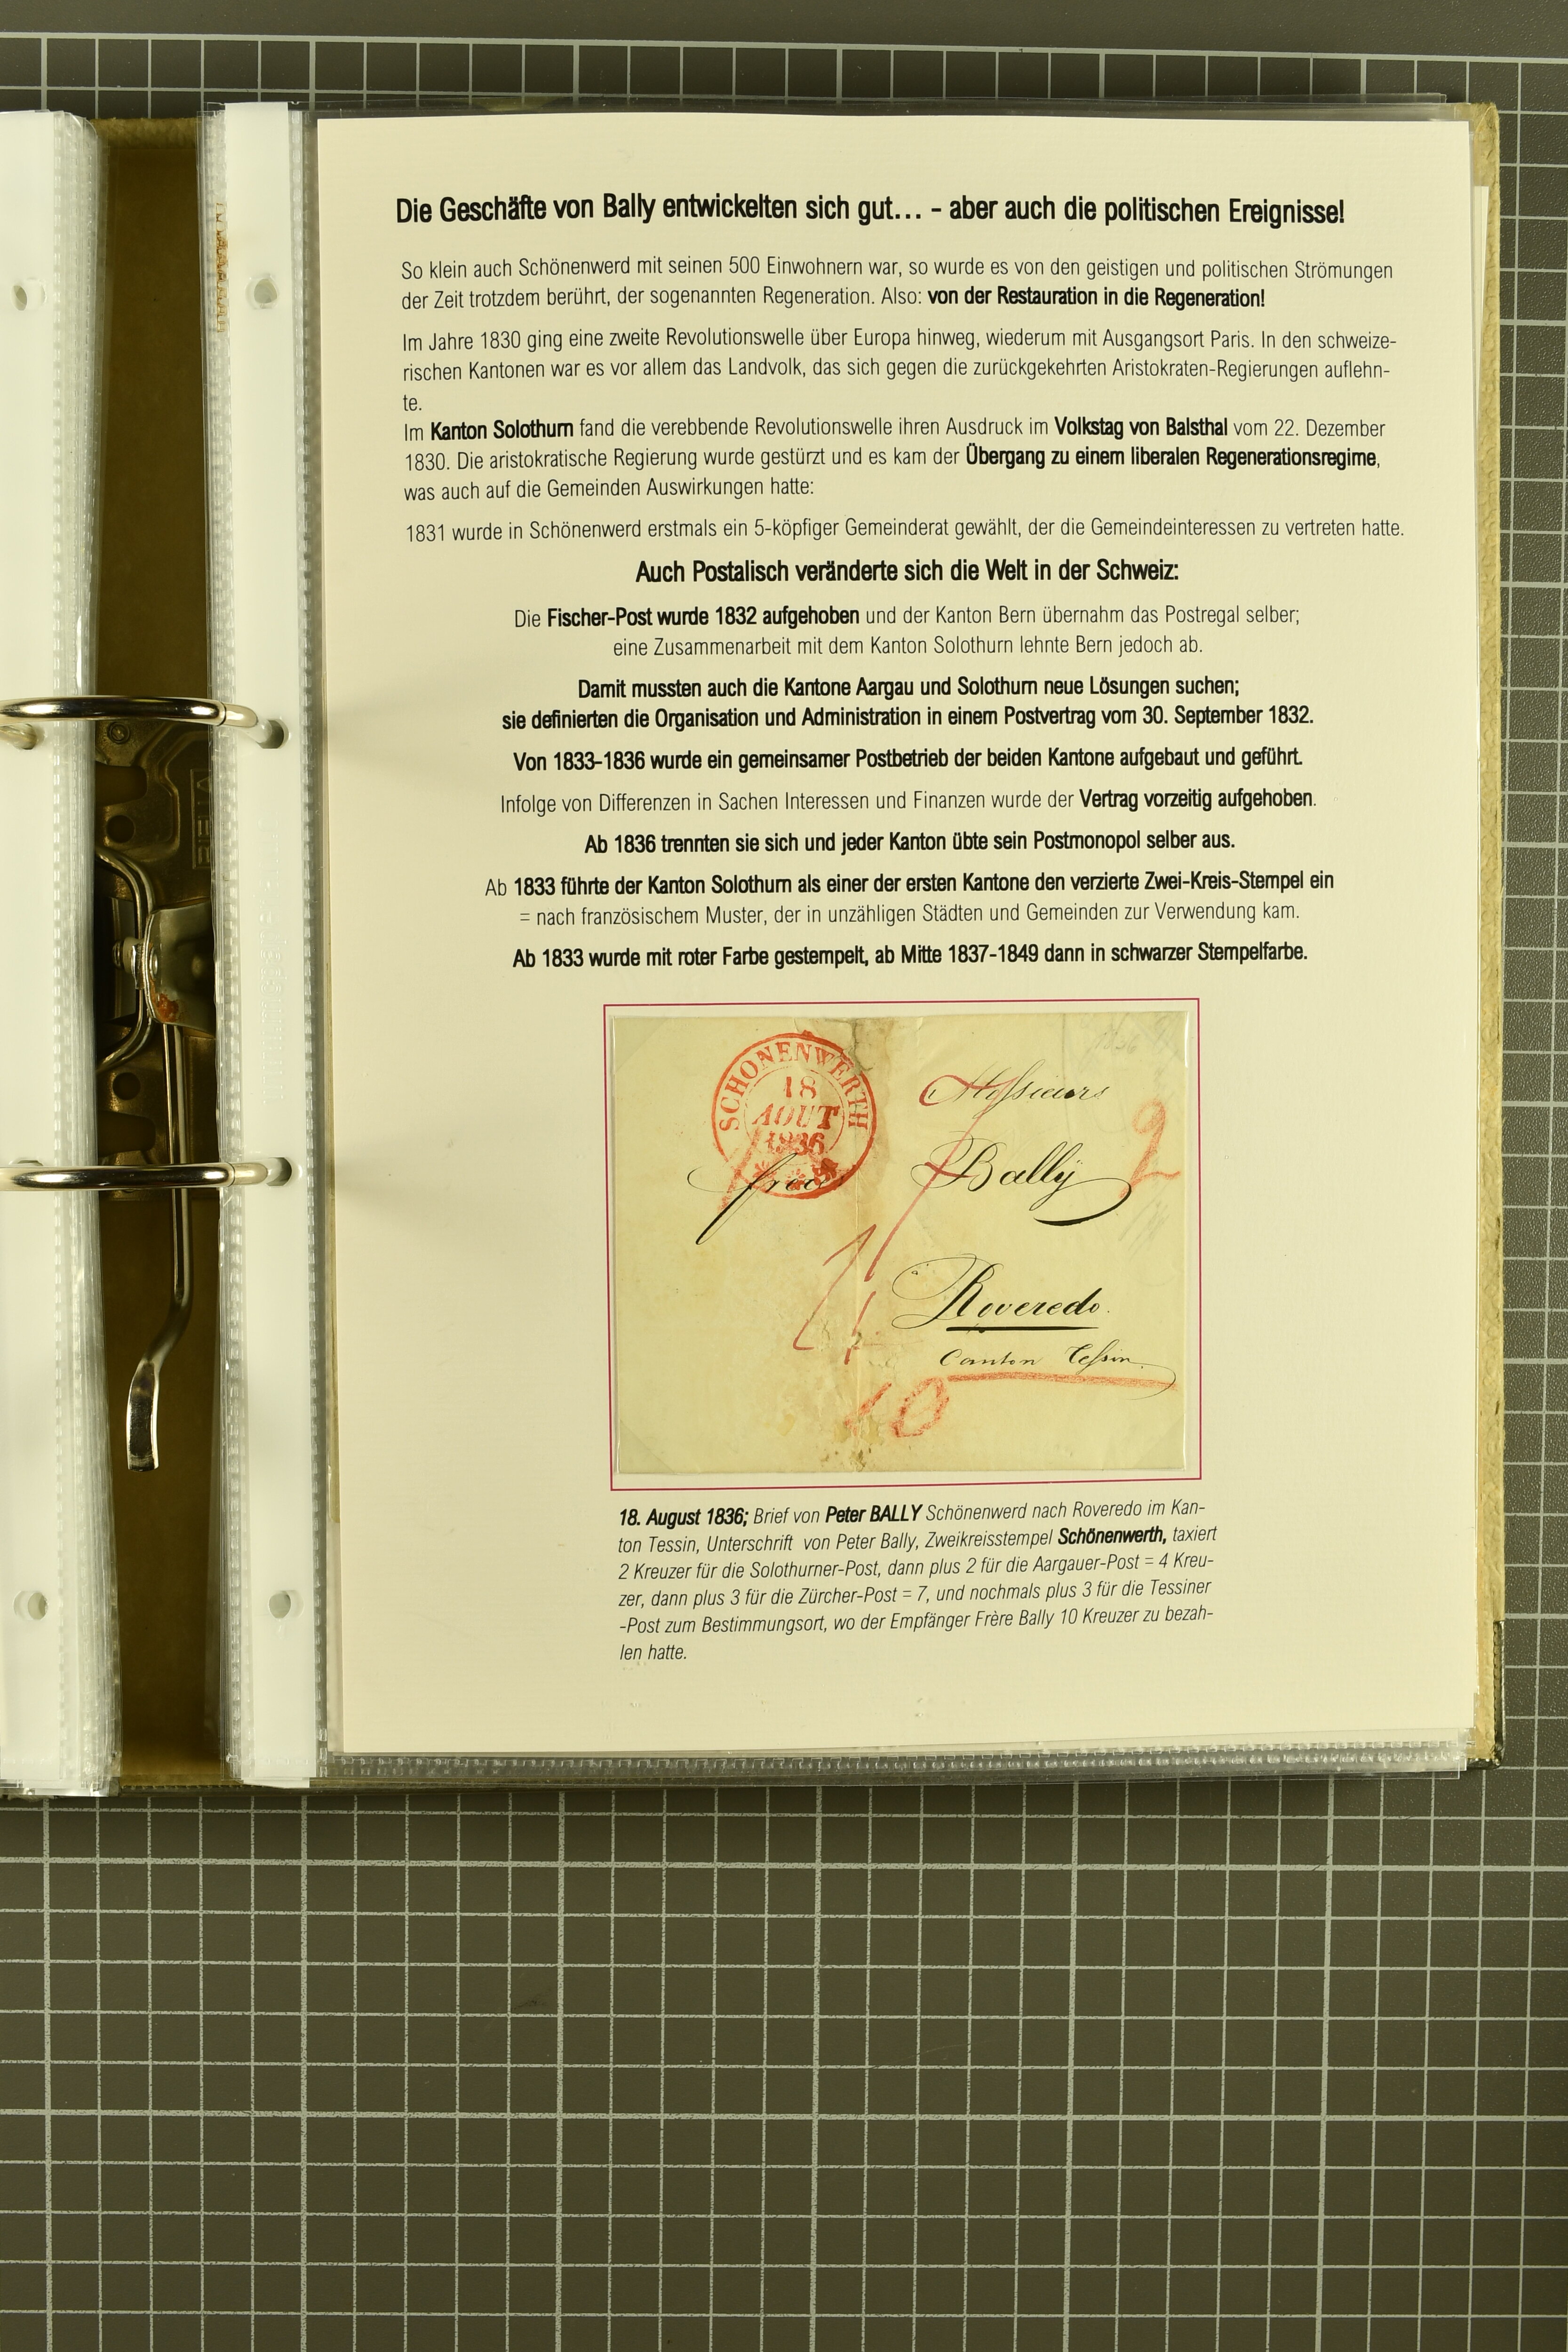 Die Geschäfte von Bally entwickelten sich gut… - aber auch die politischen Ereignisse!
So klein auch Schönenwerd mit seinen 500 Einwohnern war, so wurde es von den geistigen und politischen Strömungen
der Zeit trotzdem berührt, der sogenannten Regeneration. Also: von der Restauration in die Regeneration!
Im Jahre 1830 ging eine zweite Revolutionswelle über Europa hinweg, wiederum mit Ausgangsort Paris. In den schweize-
rischen Kantonen war es vor allem das Landvolk, das sich gegen die zurückgekehrten Aristokraten-Regierungen auflehn-
te.
Im Kanton Solothurn fand die verebbende Revolutionswelle ihren Ausdruck im Volkstag von Balsthal vom 22. Dezember
1830. Die aristokratische Regierung wurde gestürzt und es kam der Übergang zu einem liberalen Regenerationsregime,
was auch auf die Gemeinden Auswirkungen hatte:
1831 wurde in Schönenwerd erstmals ein 5-köpfiger Gemeinderat gewählt, der die Gemeindeinteressen zu vertreten hatte.
Auch Postalisch veränderte sich die Welt in der Schweiz:
Die Fischer-Post wurde 1832 aufgehoben und der Kanton Bern übernahm das Postregal selber;
eine Zusammenarbeit mit dem Kanton Solothurn lehnte Bern jedoch ab.
Damit mussten auch die Kantone Aargau und Solothurn neue Lösungen suchen;
sie definierten die Organisation und Administration in einem Postvertrag vom 30. September 1832.
Von 1833-1836 wurde ein gemeinsamer Postbetrieb der beiden Kantone aufgebaut und geführt.
Infolge von Differenzen in Sachen Interessen und Finanzen wurde der Vertrag vorzeitig aufgehoben.
Ab 1836 trennten sie sich und jeder Kanton übte sein Postmonopol selber aus.
Ab 1833 führte der Kanton Solothurn als einer der ersten Kantone den verzierte Zwei-Kreis-Stempel ein
= nach französischem Muster, der in unzähligen Städten und Gemeinden zur Verwendung kam.
Ab 1833 wurde mit roter Farbe gestempelt, ab Mitte 1837-1849 dann in schwarzer Stempelfarbe.
SCHONENWERTH
18
AOUT
1836
franco
Messieurs
Bally
2
à
Roveredo.
Canton Tessin.
10
18. August 1836; Brief von Peter BALLY Schönenwerd nach Roveredo im Kan-
ton Tessin, Unterschrift von Peter Bally, Zweikreisstempel Schönenwerth, taxiert
2 Kreuzer für die Solothurner-Post, dann plus 2 für die Aargauer-Post = 4 Kreu-
zer, dann plus 3 für die Zürcher-Post = 7, und nochmals plus 3 für die Tessiner
-Post zum Bestimmungsort, wo der Empfänger Frère Bally 10 Kreuzer zu bezah-
len hatte.